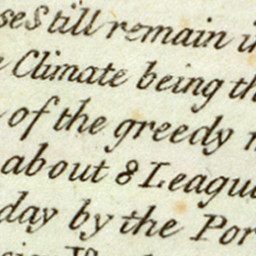 se Still remain i
Climate being th
of the greedy
about 8 Leagu
day by the Por